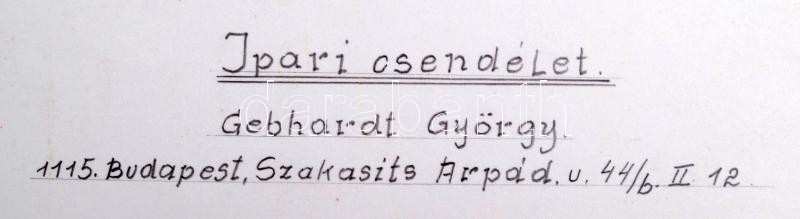 Ipari csendélet.
darabanth
Gebhardt György.
1115. Budapest, Szakasits Arpád. u. 44/b. II. 12.